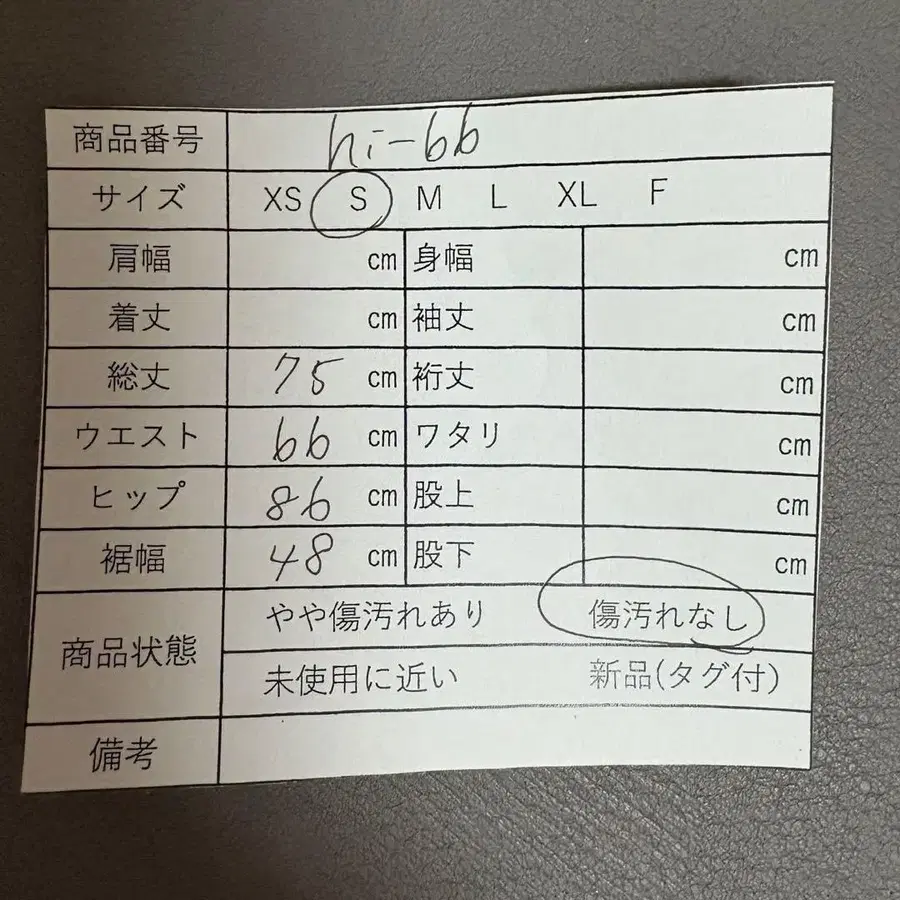 商品番号 hi-66
サイズ XS S M L XL F
肩幅 cm 身幅 cm
着丈 cm 袖丈 cm
総丈 75 cm 裄丈 cm
ウエスト 66 cm ワタリ cm
ヒップ 86 cm 股上 cm
裾幅 48 cm 股下 cm
商品状態 やや傷汚れあり 傷汚れなし
未使用に近い 新品(タグ付)
備考